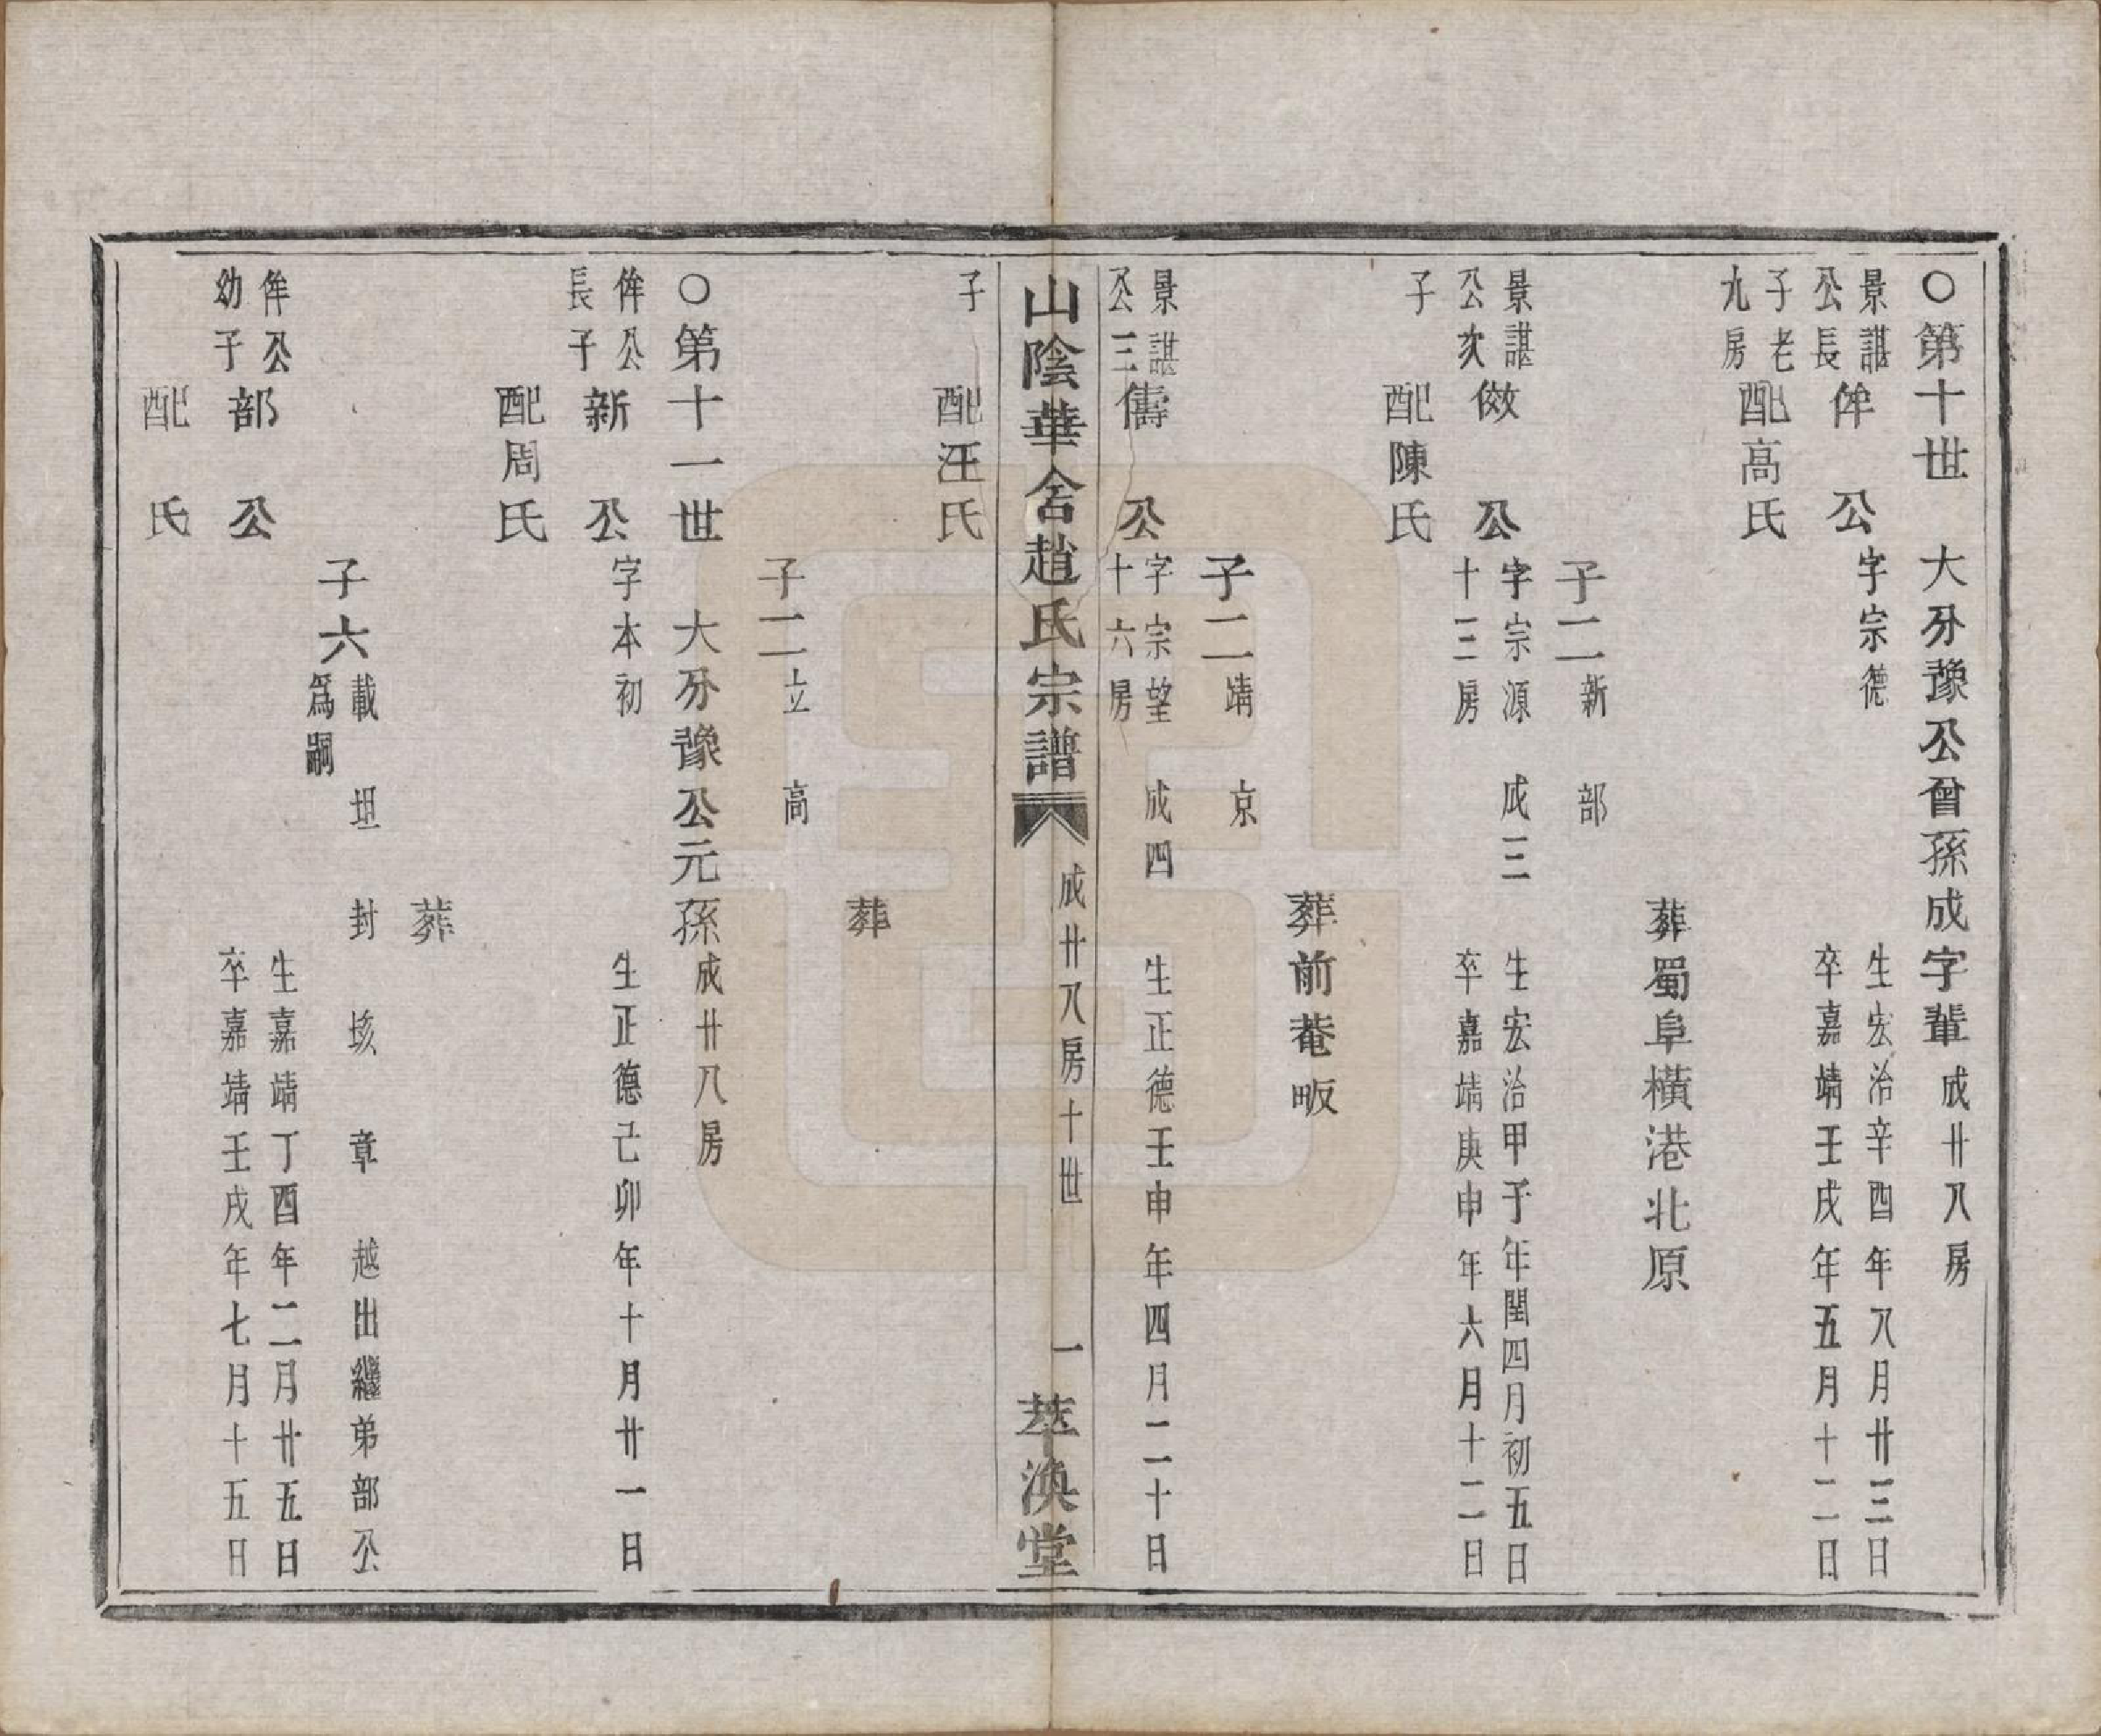 〇第十世　大分豫公曾孫成字輩成廿八房
景諶公長子老九房
侔公　字宗德
生宏治辛酉年八月廿三日
卒嘉靖壬戌年五月十二日
配高氏
葬蜀阜橫港北原
子二　新　部
景諶公次子
俲公　字宗源　成三十三房
生宏治甲子年閏四月初五日
卒嘉靖庚申年六月十二日
配陳氏
葬前菴畈
子二　靖　京
景諶公三子
儔公　字宗望　成四十六房
生正德壬申年四月二十日
山陰華舍趙氏宗譜　成廿八房十世　一　萃渙堂
配汪氏
葬
子二　立　高
〇第十一世　大分豫公元孫成廿八房
侔公長子
新公　字本初
生正德己卯年十月廿一日
配周氏
葬
子六　載　坦　封　垓　章　越出繼弟部公爲嗣
侔公幼子
部公
生嘉靖丁酉年二月廿五日
卒嘉靖壬戌年七月十五日
配　氏